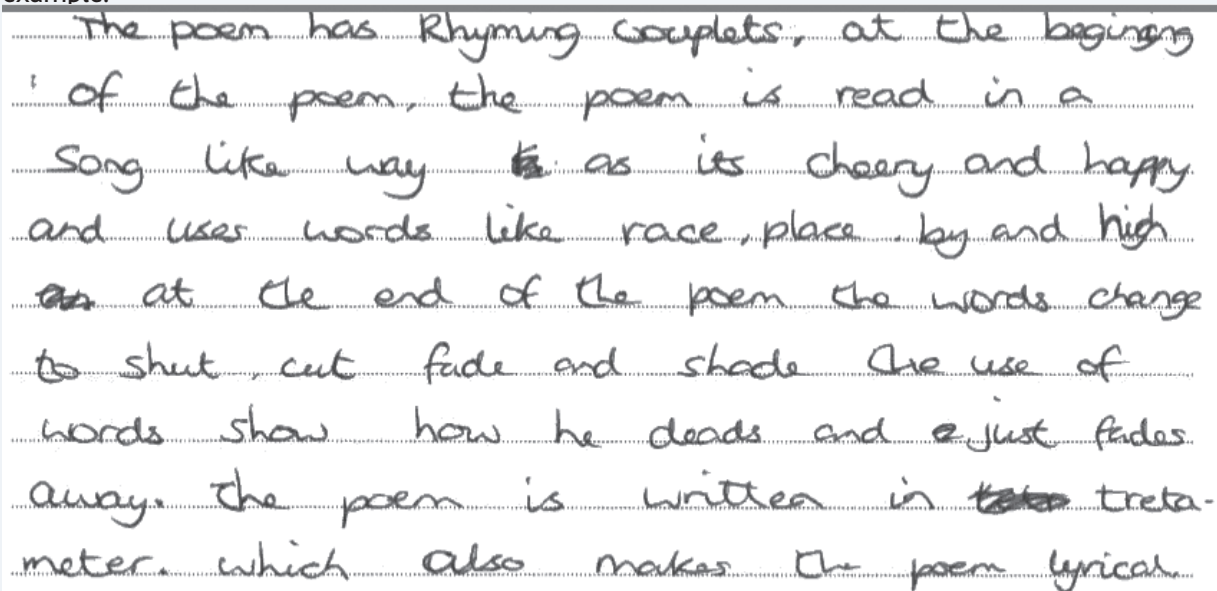 example:
The poem has Rhyming Couplets, at the begining
of the poem, the poem is read in a
Song like way as its cheery and happy
and uses words like race, place. by and high
at the end of the poem the words change
to shut, cut fade and shade the use of
words show how he deads and just fades
away. The poem is written in treta-
meter. which also makes the poem lyrical.